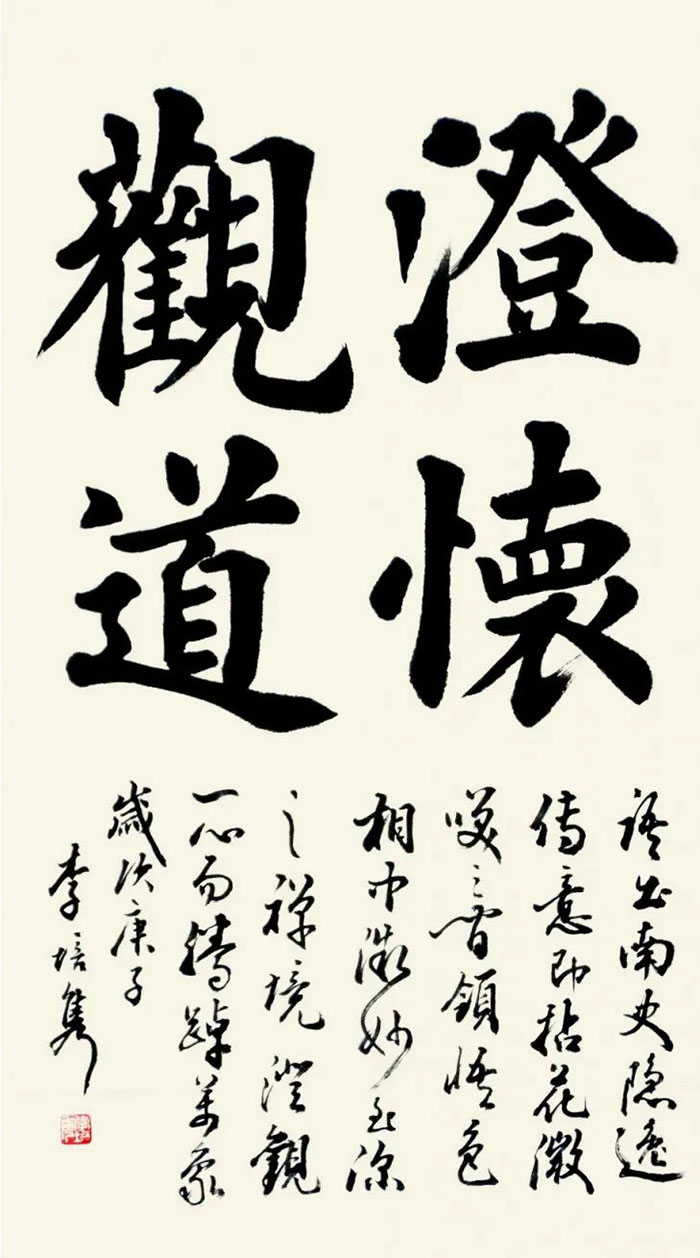 澄懷
觀道
語出南史隱逸
傳意即拈花微
笑之間領悟色
相中微妙至深
之禪境澄觀
一心而騰踔萬象
歲次庚子
李培雋